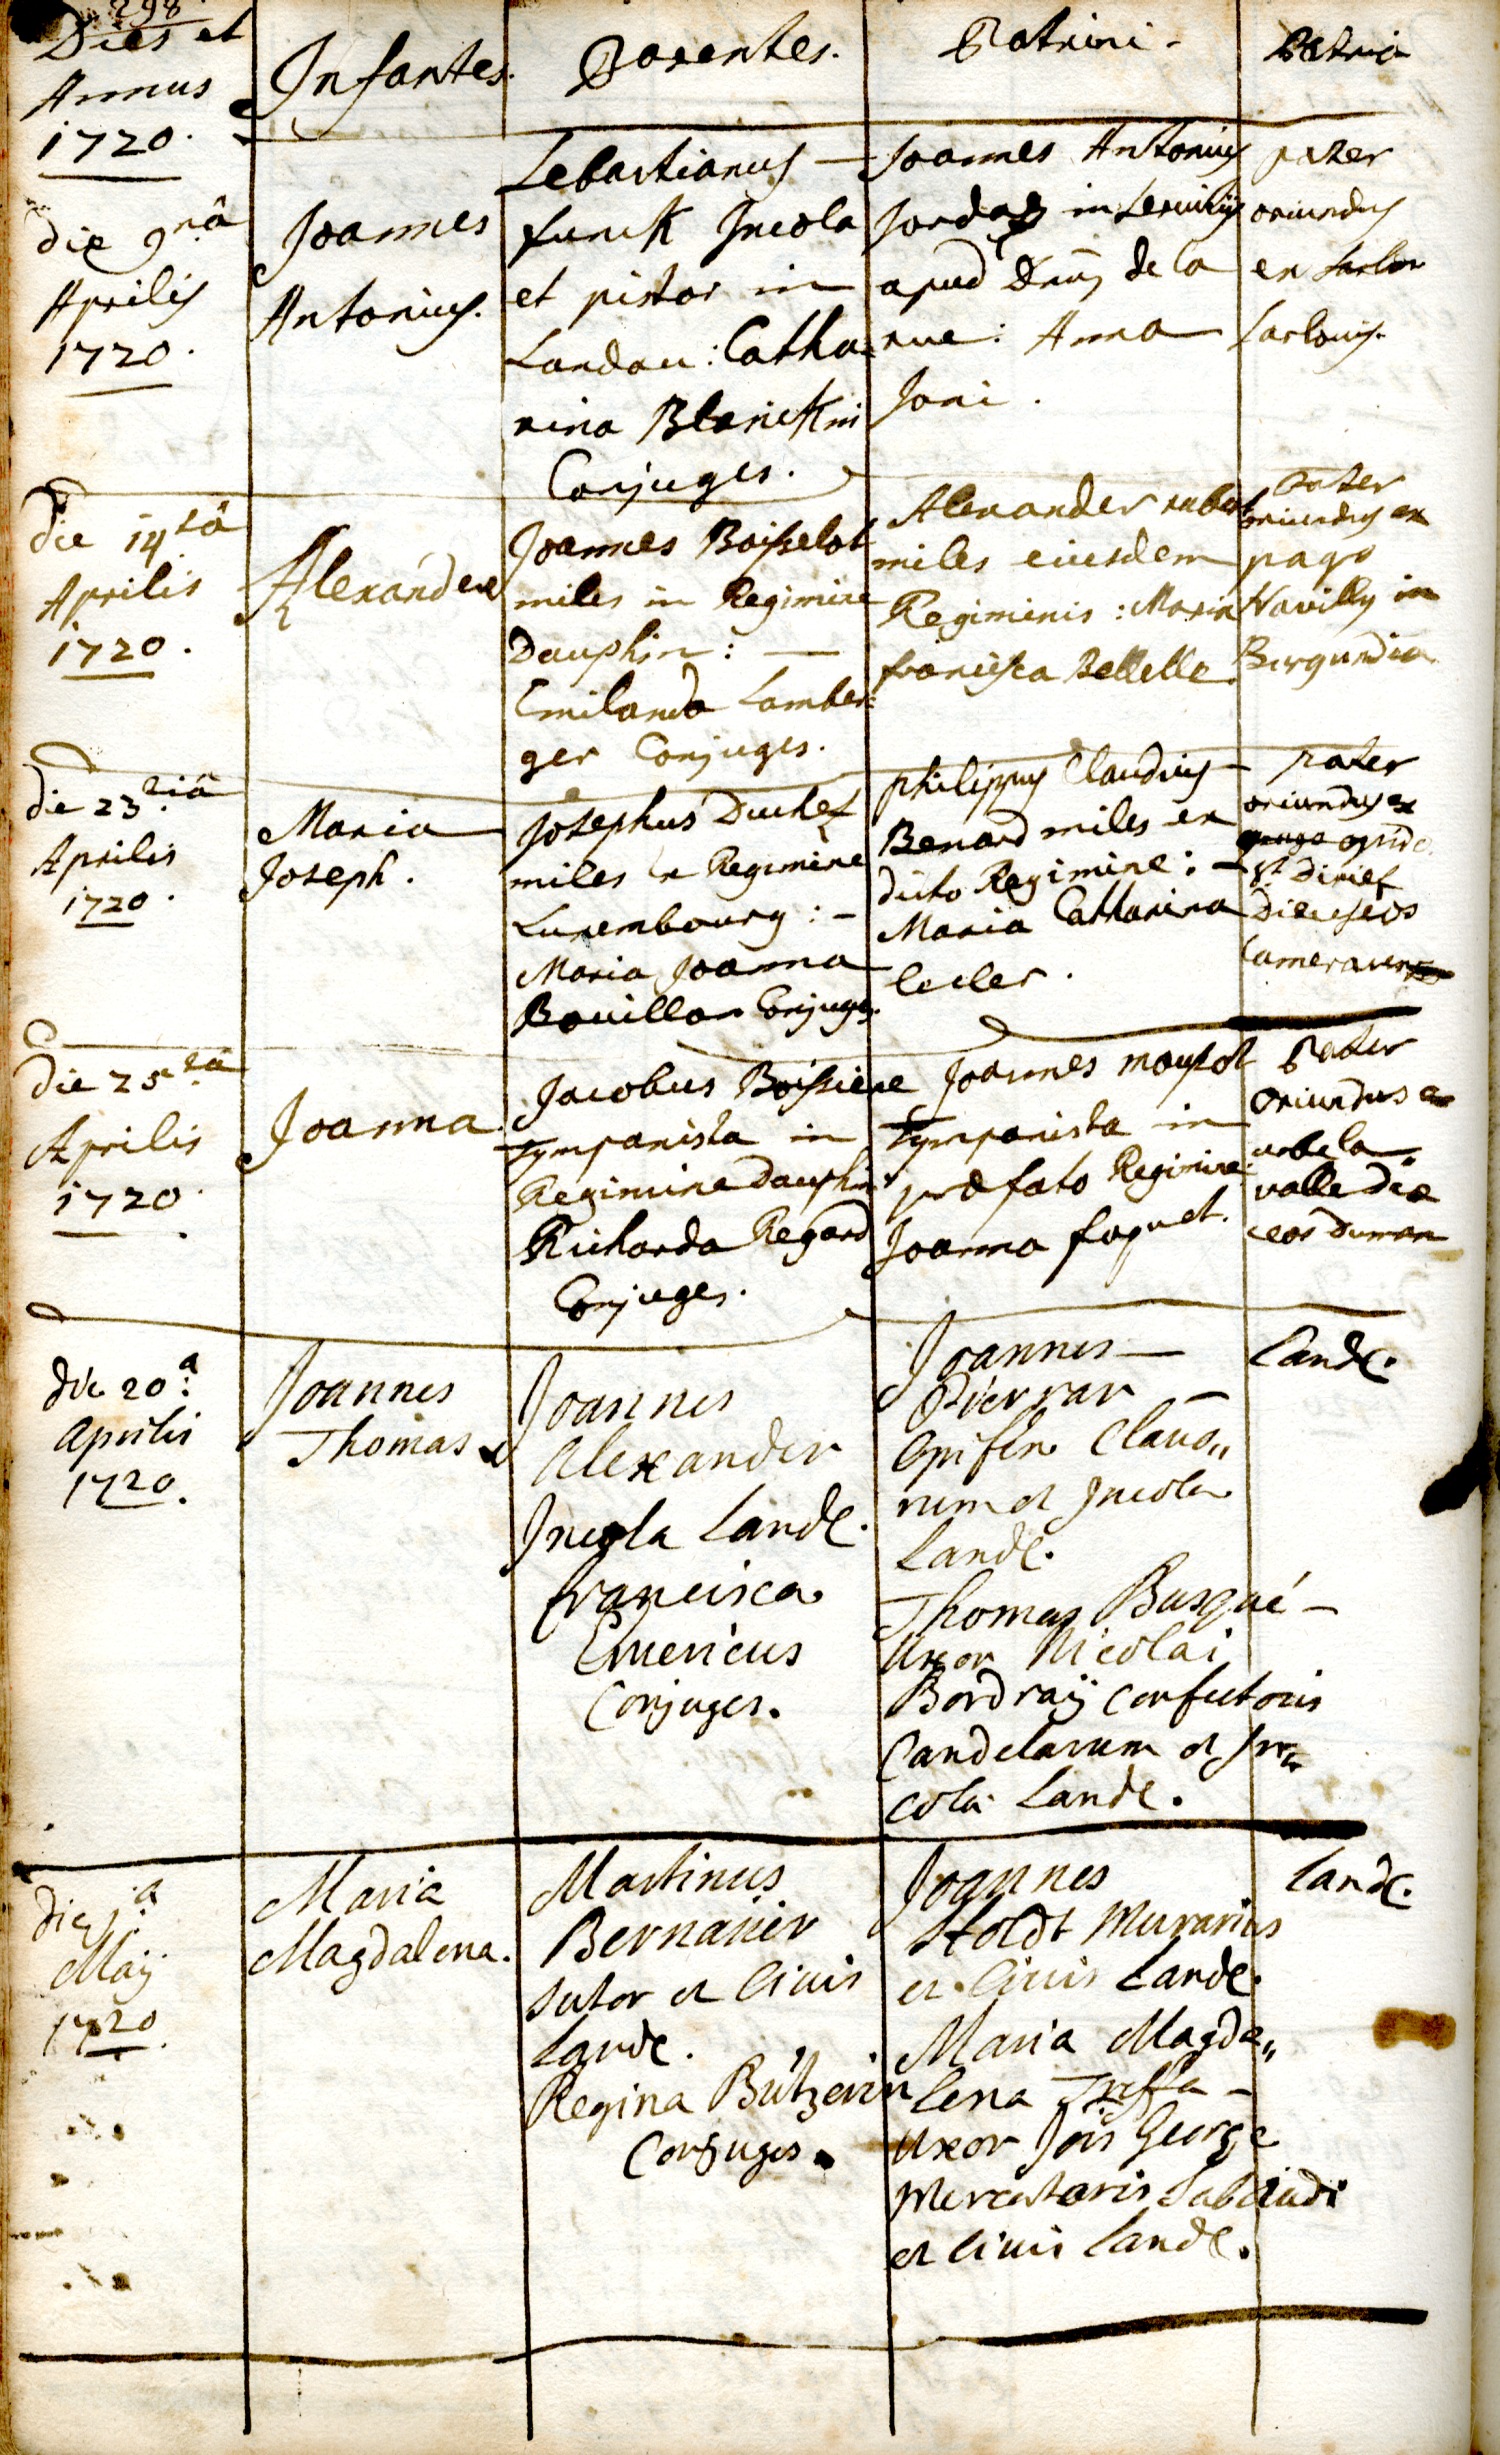 298
Dies et
Annus
1720.
Infantes.
Parentes.
Patrini.
Patria
die 9nâ
Aprilis
1720.
Joannes
Antonius.
Sebastianus
funck Incola
et pistor in
Landau: Catha
rina Blanckin
Conjuges.
Joannes Antonius
apud Dnu de la
rue: Anna
Joni.
pater
oriundus
ex
Sarlouis.
die 14tâ
Aprilis
1720.
Alexander
Joannes Boisselot
miles in Regimine
Dauphin:
Emilanda Lamber=
ger Conjuges.
Alexander
miles eiusdem
Regiminis: Maria
francisca Bellelle.
Pater
oriundus ex
pago
Navilly in
Burgundia
die 23tiâ
Aprilis
1720.
Maria
Joseph.
Josephus
miles in Regimine
Luxembourg:
Maria Joanna
Bouillon Conjuges.
philippus Claudius
Benard miles ex
dicto Regimine:
Maria Catharina
lecler.
pater
oriundus ex
oppido
die 25tâ
Aprilis
1720.
Joanna.
Jacobus Boissiere
tympanista in
Regimine Dauphin:
Richarda Regard
Conjuges.
Joannes
tympanista in
præfato Regimine
Joanna foquet.
Pater
Oriundus ex
urbe la
valle diæ
die 20.a
Aprilis
1720.
Joannes
Thomas
Joannes
Alexander
Incola Landæ.
francisca
Emericus
Conjuges.
Joannes
Pierrar
Opifex Clavo,,
rum et Incola
Landæ.
Thomas Busqué
Uxor Nicolai
Bordraÿ Confectoris
Candelarum et In,,
colæ Landæ.
Landæ.
die 1.a
Maÿ
1720.
Maria
Magdalena.
Martinus
Bernauer
sutor et Civis
Landæ.
Regina Bützerin
Conjuges.
Joannes
Holdt Murarius
et Civis Landæ.
Maria Magda,,
lena
Uxor Jois George
Mercatoris
et Civis Landæ.
Landæ.